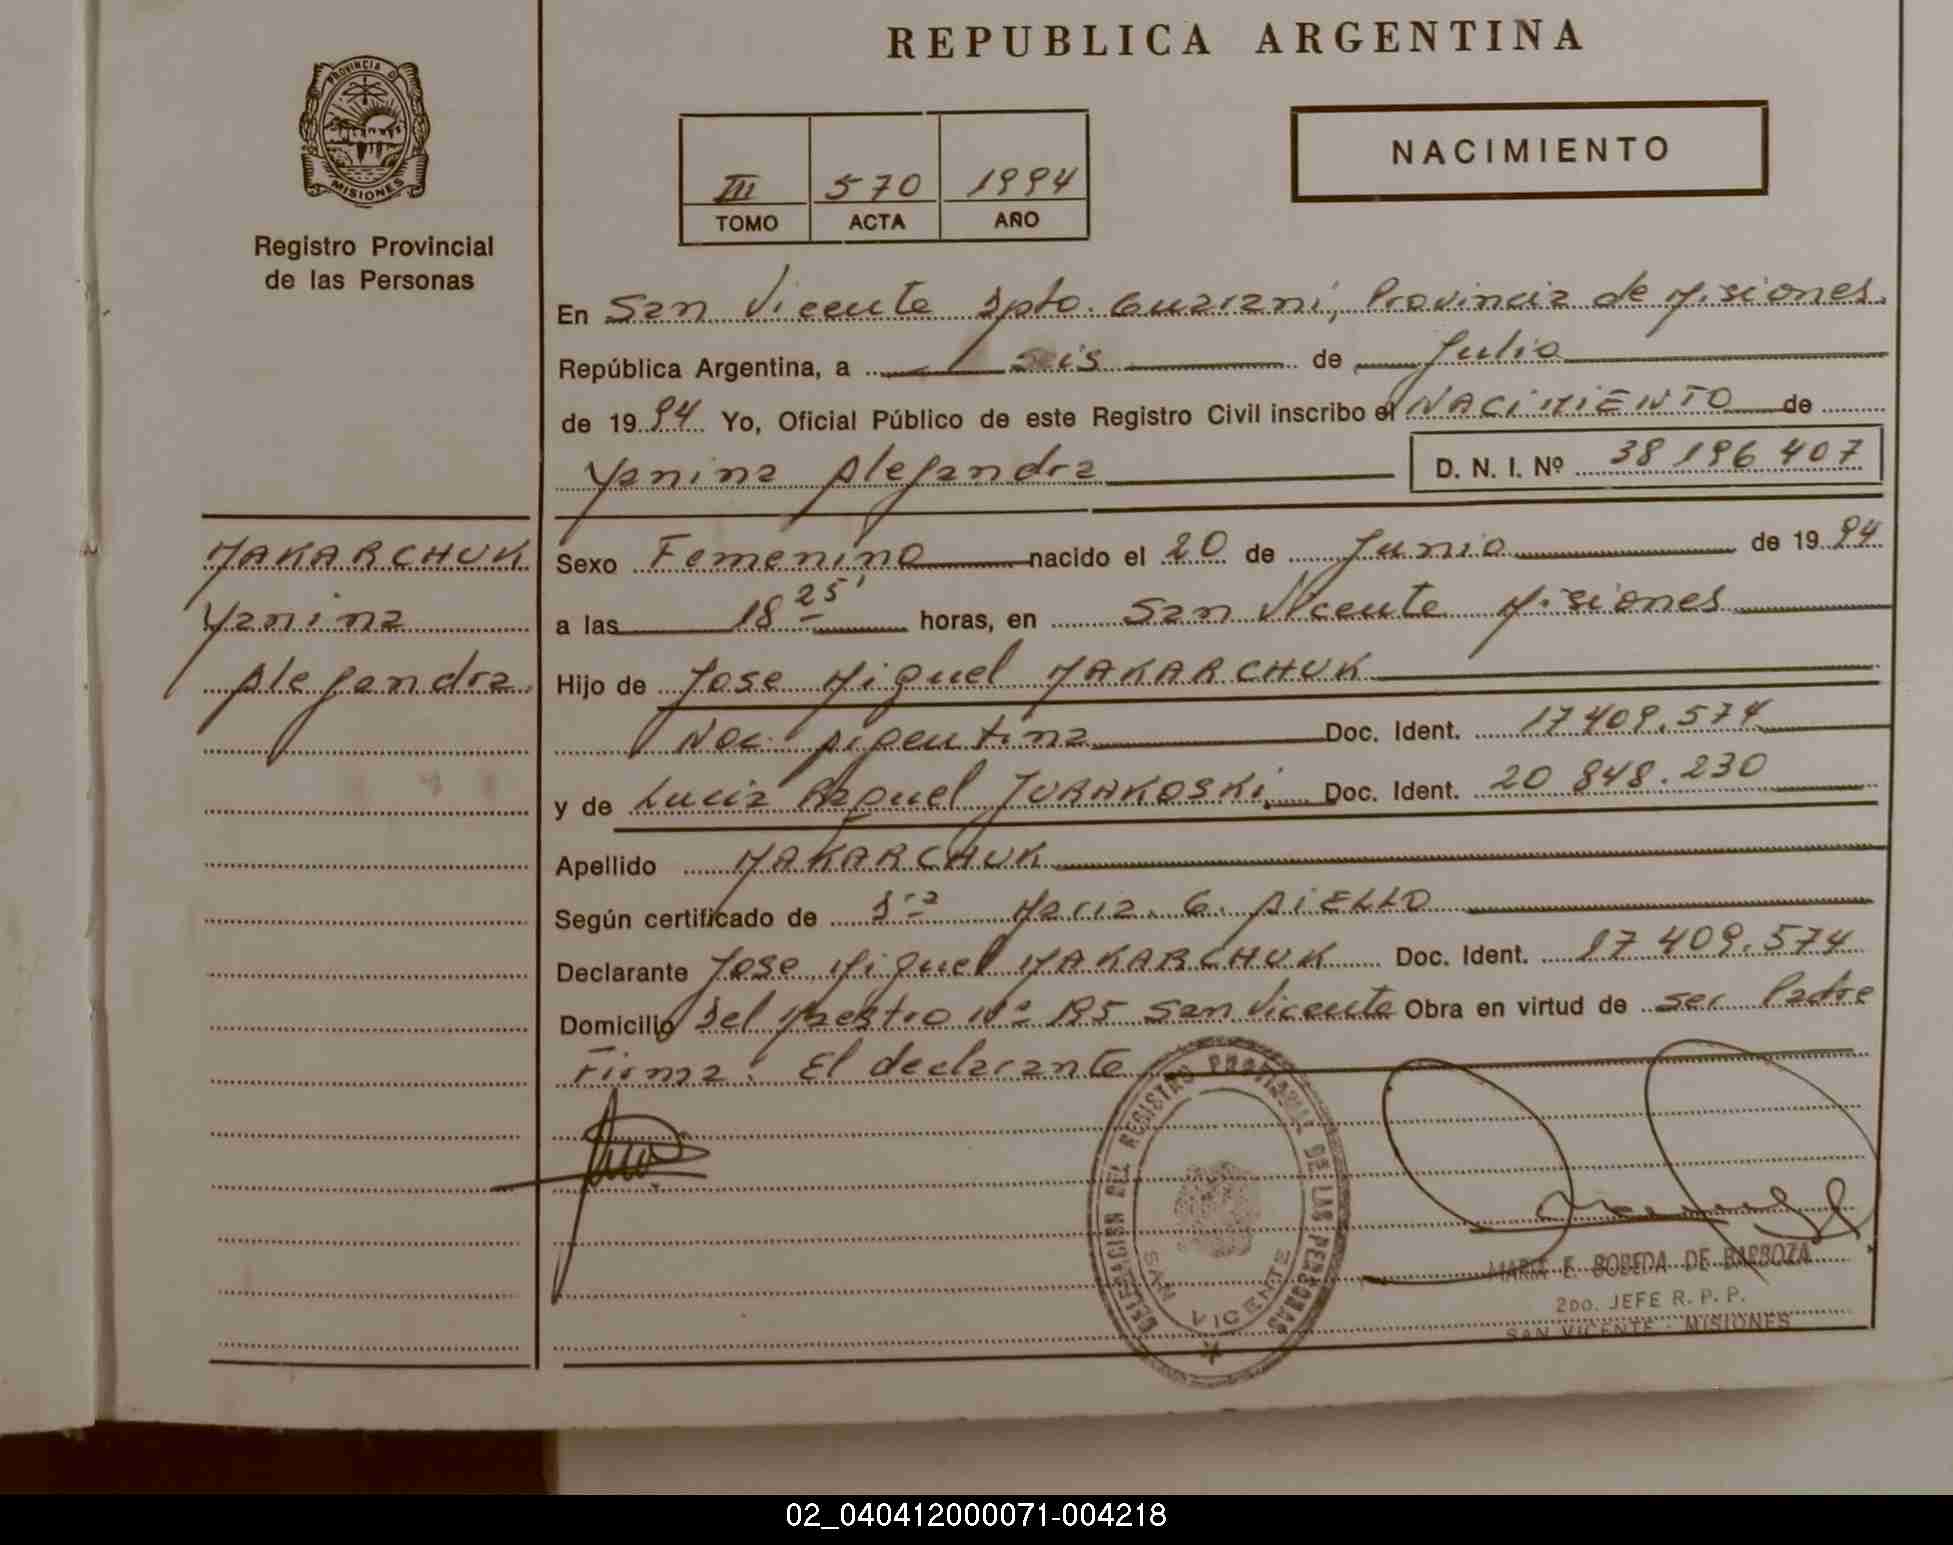 REPUBLICA ARGENTINA
PROVINCIA D
MISIONES
Registro Provincial
de las Personas
III 570 1994
TOMO ACTA AÑO
NACIMIENTO
En San Vicente Dpto. Guaraní, Provincia de Misiones.
República Argentina, a seis de Julio
de 1994 Yo, Oficial Público de este Registro Civil inscribo el NACIMIENTO de
Yanina Alejandra D. N. I. Nº 38 196 407
MAKARCHUK
Yanina
Alejandra.
Sexo Femenino nacido el 20 de Junio de 1994
a las 18 25' horas, en San Vicente Misiones
Hijo de Jose Miguel MAKARCHUK
Nac. Argentina Doc. Ident. 17 409.574
y de Lucia Raquel Doc. Ident. 20 848.230
Apellido MAKARCHUK
Según certificado de Dra Maria. G. AIELLO
Declarante Jose Miguel MAKARCHUK Doc. Ident. 17 409.574
Domicilio Del Maestro Nº 195 San Vicente Obra en virtud de ser Padre
Firma: El declarante
DELEGACION DEL REGISTRO PROVINCIAL DE LAS PERSONAS
SAN VICENTE
MARIA E. BOBEDA DE BARBOZA
2DO. JEFE R. P. P.
SAN VICENTE - MISIONES
02_040412000071-004218